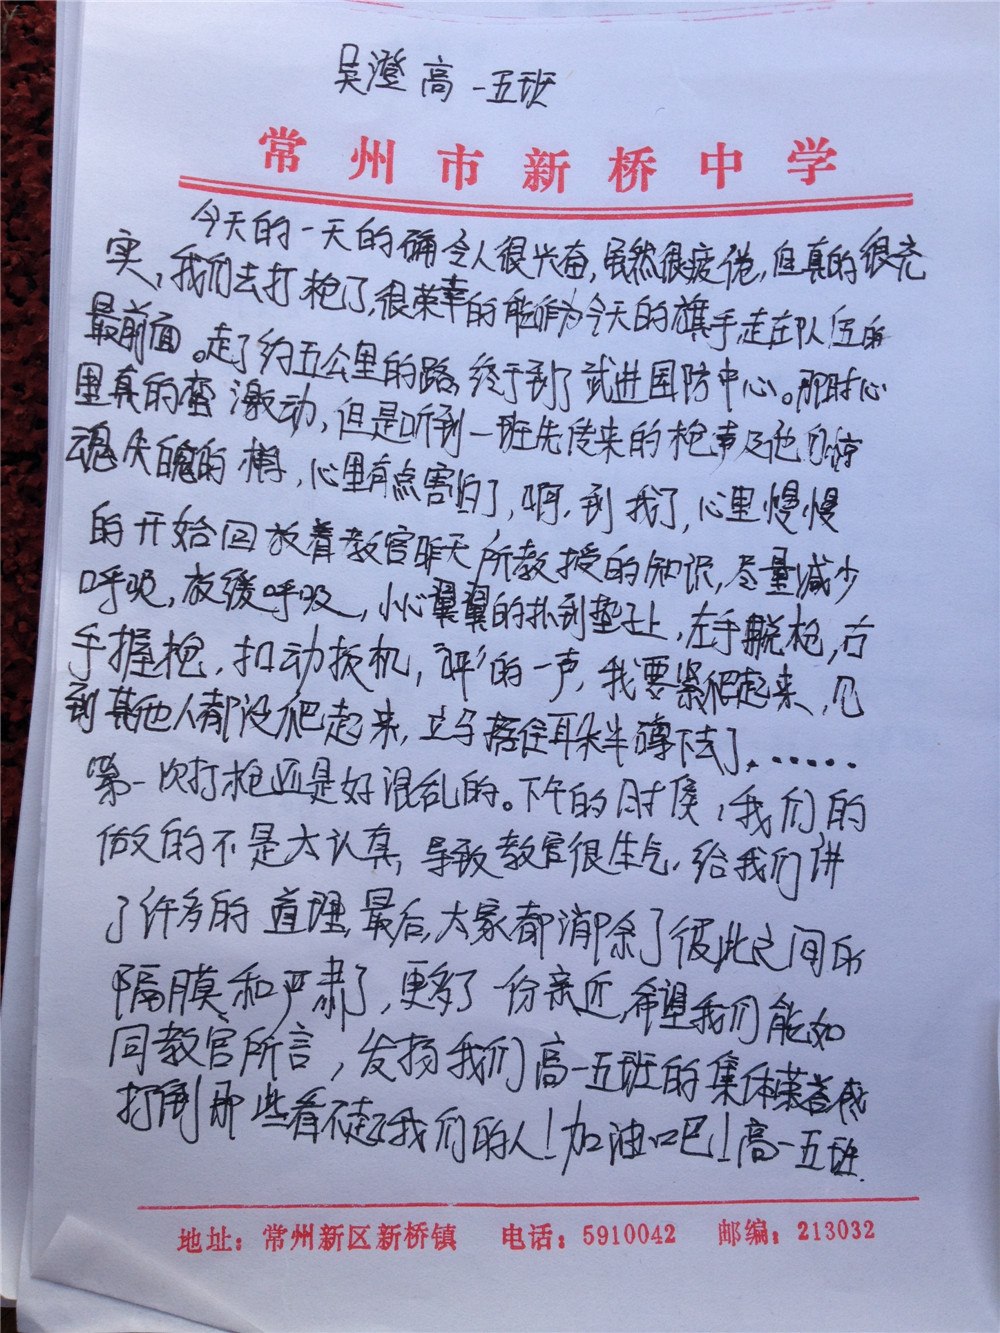 吴澄 高一五班
常州市新桥中学
今天的一天的确令人很兴奋,虽然很疲倦,但真的很充
实,我们去打枪了,很荣幸的能作为今天的旗手走在队伍的
最前面。走了约五公里的路,终于到了武进国防中心。那时心
里真的蛮激动,但是听到一班先传来的枪声及他们惊
魂失魄的模样,心里有点害怕了,啊,到我了,心里慢慢
的开始回放着教官昨天所教授的知识,尽量减少
呼吸,放缓呼吸,小心翼翼的扑到垫子上,左手脱枪,右
手握枪,扣动扳机,“砰”的一声,我要紧爬起来,见
到其他人都没爬起来,立马捂住耳朵半蹲下去了,......
第一次打枪还是好混乱的。下午的时候,我们的
做的不是太认真,导致教官很生气,给我们讲
了许多的道理,最后,大家都消除了彼此之间的
隔膜和严肃了,更多了一份亲近,希望我们能如
同教官所言,发扬我们高一五班的集体荣誉感
打倒那些看不起我们的人!加油吧!高一五班.
地址:常州新区新桥镇 电话:5910042 邮编:213032